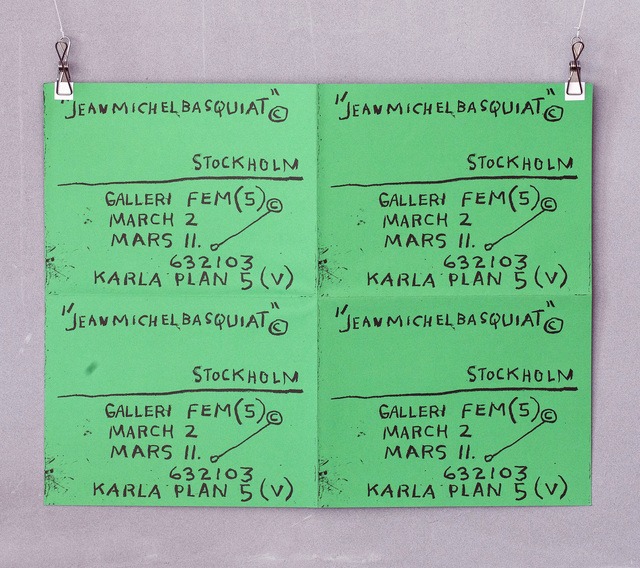 "JEANMICHELBASQUIAT"©
STOCKHOLM
GALLERI FEM(5)©
MARCH 2
MARS 11.
632103
KARLA PLAN 5 (V)
"JEANMICHELBASQUIAT"©
STOCKHOLM
GALLERI FEM(5)©
MARCH 2
MARS 11.
632103
KARLA PLAN 5 (V)
"JEANMICHELBASQUIAT"©
STOCKHOLM
GALLERI FEM(5)©
MARCH 2
MARS 11.
632103
KARLA PLAN 5 (V)
"JEANMICHELBASQUIAT"©
STOCKHOLM
GALLERI FEM(5)©
MARCH 2
MARS 11.
632103
KARLA PLAN 5 (V)